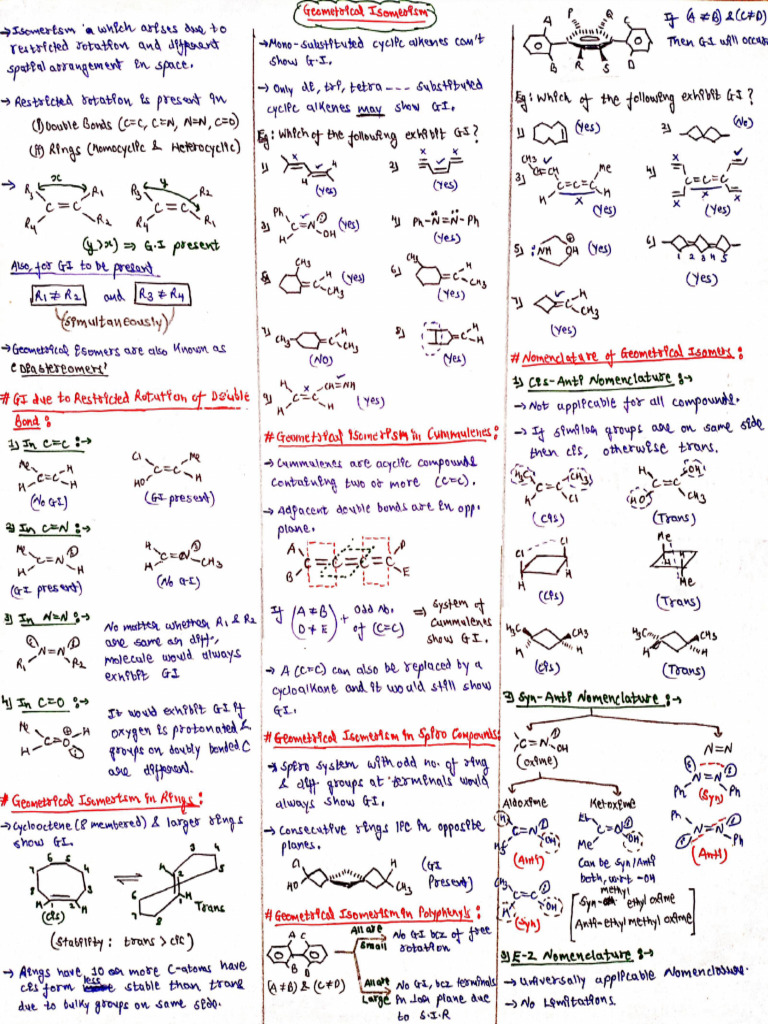 Geometrical Isomerism
→ Isomerism in which arises due to
restricted rotation and different
spatial arrangement in space.
→ Restricted rotation is present in
(i) Double Bonds (C=C, C=N, N=N, C=O)
(ii) Rings (Homocyclic & Heterocyclic)
→
x
R3 R1
C=C
R4 R2
y
R3 R2
C=C
R4 R1
(y>x) ⇒ G.I present
Also, for GI to be present
R1 ≠ R2 and R3 ≠ R4
(simultaneously)
→ Geometrical Isomers are also known as
'Diastereomers'
# GI due to Restricted Rotation of Double
Bond:
1) In C=C :→
Me H
C=C
H H
(No GI)
Cl Me
C=C
HO H
(GI present)
2) In C=N :→
Me
C=N
H H
(GI present)
H
C=N
H CH3
(No GI)
3) In N=N :→
N=N
R1 R2
No matter whether R1 & R2
are same or diff.,
molecule would always
exhibit GI
4) In C=O :→
Me H
C=O
H
It would exhibit GI if
oxygen is protonated &
groups on doubly bonded C
are different.
# Geometrical Isomerism in Rings:
→ Cyclooctene (8 membered) & larger rings
show GI.
6 5
7 4
8 3
1 2
H H
(cis)
⇌
Trans
(Stability: trans > cis)
→ Rings have 10 or more C-atoms have
cis form less stable than trans
due to bulky groups on same side.
→ Mono-substituted cyclic alkenes can't
show G.I.
→ Only di, tri, tetra --- substituted
cyclic alkenes may show GI.
Eg: Which of the following exhibit GI?
1)
H
H
(Yes)
2)
(Yes)
3) Ph
C=N
H OH
(Yes)
4) Ph-N=N-Ph
(Yes)
5) CH3
C
H
CH3
(Yes)
6) CH3
C
H
CH3
(Yes)
7) CH3
C
H
CH3
(NO)
8)
C
H
CH3
(Yes)
9) H CH=NH
C=C
H H
(Yes)
# Geometrical Isomerism in Cummulenes:
→ Cummulenes are acyclic compounds
containing two or more (C=C).
→ Adjacent double bonds are in opp.
plane.
A D
C=C=C=C
B E
If (A≠B
D≠E) + odd no.
of (C=C) ⇒ system of
cummulenes
show G.I.
→ A (C=C) can also be replaced by a
cycloalkane and it would still show
GI.
# Geometrical Isomerism in Spiro Compounds:
→ Spiro system with odd no. of ring
& diff groups at terminals would
always show GI.
→ Consecutive rings lie in opposite
planes.
Cl H
HO CH3
(GI
Present)
# Geometrical Isomerism in Polyphenyls:
A C
B D
(A≠B) & (C≠D)
All are
Small
No GI bcz of free
rotation
All are
Large
No GI, bcz terminals
in same plane due
to S.I.R
A P Q C
B R S D
If (A≠B) & (C≠D)
Then GI will occur
Eg: Which of the following exhibit GI?
1) (Yes)
2) (No)
3) CH3
CH=CH Me
C=C=C
H H
(Yes)
4) C=C=C
(Yes)
5) NH OH (Yes)
6) 1 2 3 4 5
(Yes)
7) C
H
CH3
(Yes)
# Nomenclature of Geometrical Isomers:
1) Cis-Anti Nomenclature :→
→ Not applicable for all compounds.
→ If similar groups are on same side
then cis, otherwise trans.
H3C CH3
C=C
H Cl
(cis)
H OH
C=C
HO CH3
(Trans)
Cl Cl
H H
(cis)
Me
H H
Me
(Trans)
H3C CH3
H H
(cis)
H3C CH3
H H
(Trans)
2) Syn-Anti Nomenclature :→
C=N
OH
(oxime)
N=N
Aldoxime
Ketoxime
H
C=N
H3C OH
(Anti)
Et
C=N
Me OH
Can be Syn/Anti
both, wrt -OH
N=N
Ph Ph
(Syn)
Ph
N=N
Ph
(Anti)
CH3
C=C
H OH
(Syn)
Syn- methyl ethyl oxime
Anti-ethyl methyl oxime
3) E-Z Nomenclature :→
→ Universally applicable Nomenclature.
→ No Limitations.